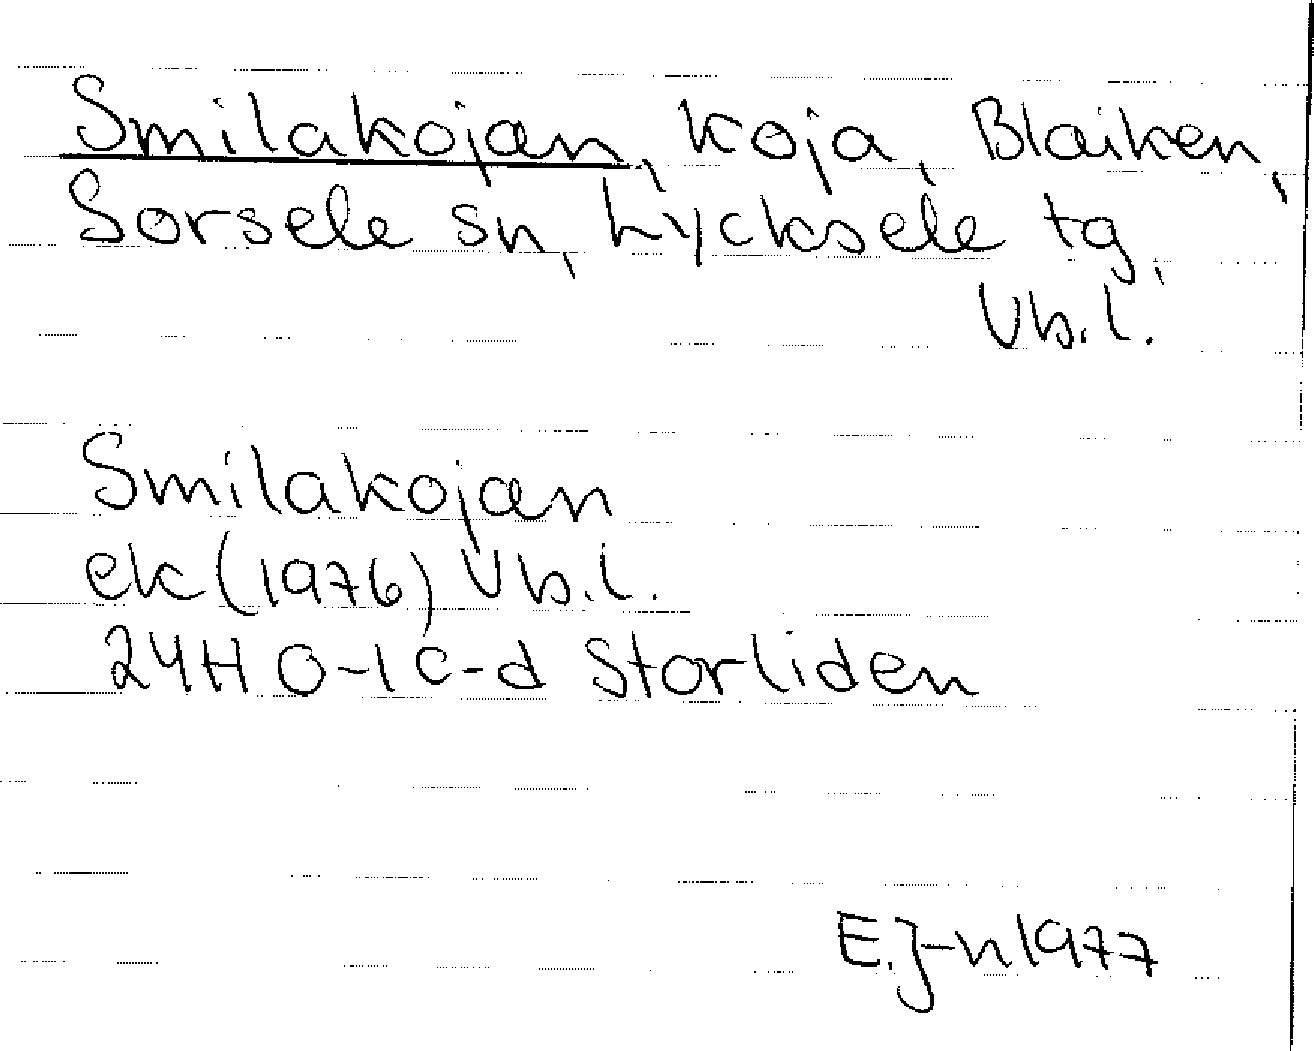 Smilakojan, koja, Blaiken,
Sorsele sn, Lycksele tg,
Vb.l.
Smilakojan
ek (1976) Vb.l.
24H 0-1 c-d Storliden
E.J-n 1977